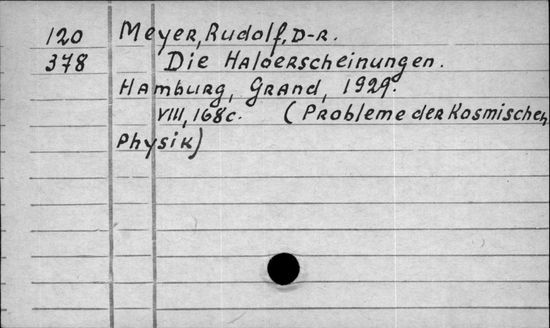 120 Meyer, Rudolf, D-r.
378 Die Haloerscheinungen.
Hamburg, Grand, 1929.
VIII, 168c. (Probleme der Kosmischen
Physik)